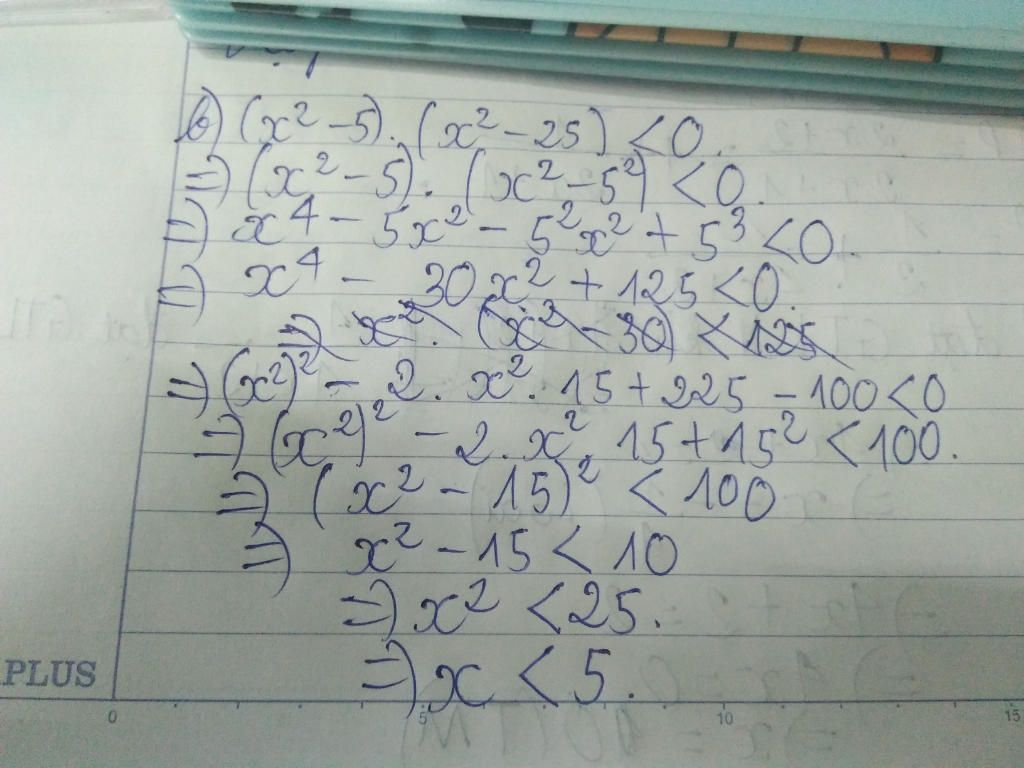 b) (x² - 5) . (x² - 25) < 0.
=) (x² - 5). (x² - 5²) < 0.
=) x⁴ - 5x² - 5²x² + 5³ < 0.
=) x⁴ - 30x² + 125 < 0.
=) x² . (x² - 30) < 125
=) (x²)² - 2. x² . 15 + 225 - 100 < 0
=) (x²)² - 2. x². 15 + 15² < 100.
=) (x² - 15)² < 100
=) x² - 15 < 10
=) x² < 25.
=) x < 5.
PLUS
0 5 10 15